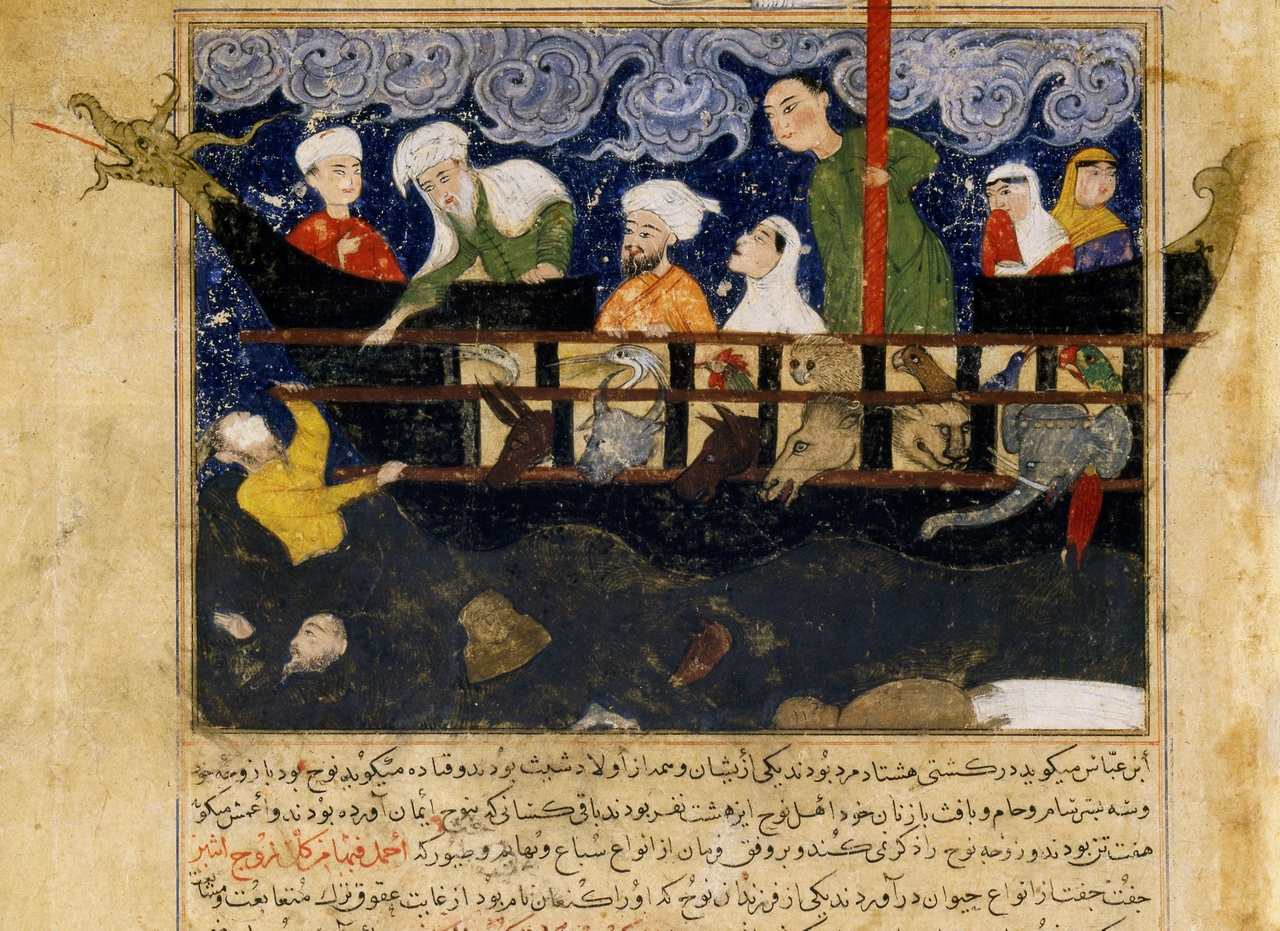 ابن عبّاس میکوید در کشتی هشتاد مرد بودند یکی ازیشان و سمداز أولاد شیث بودند و قتاده میکوید نوح بود با زوجه خود
وسه پسر سام وحام ویافث بازنان خود اهل نوح این هشت نفر بودند باقی کسانی که بنوح إیمان آورده بودند وأعمش میکوید
هفت تن بودند و زوجه نوح را ذکر نمی کُند و بر وفق فرمان از انواع سباع وبهایم وطیور که أحمل فیها من کلّ زوجین اثنین
جفت جفت از انواع حیوان درآوردند یکی از فرزندان نوح که اورا کنعان نام بود از غایت عقوق ترک مُتابعت